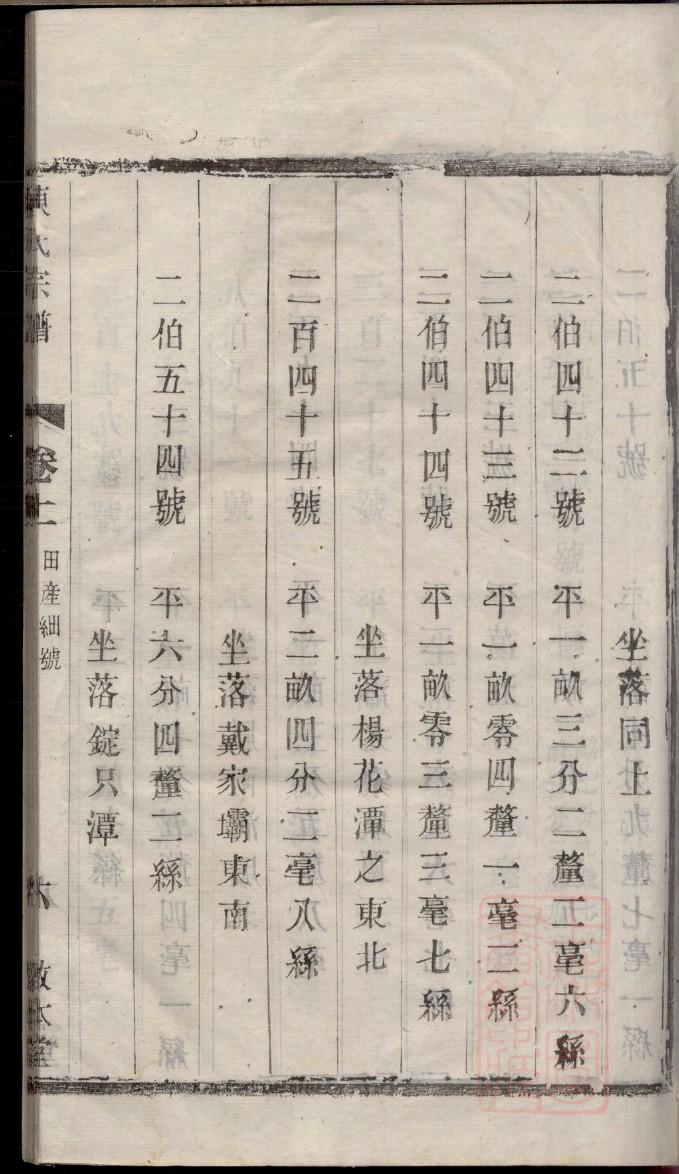 坐落同上
二伯四十二號 平一畝三分二釐二毫六絲
二伯四十三號 平一畝零四釐一毫二絲
二伯四十四號 平一畝零三釐三毫七絲
坐落楊花潭之東北
二百四十五號 平二畝四分二毫八絲
坐落戴家壩東南
二伯五十四號 平六分四釐二絲
坐落錠只潭
陳氏宗譜 卷十一 田產細號 六 敬本堂